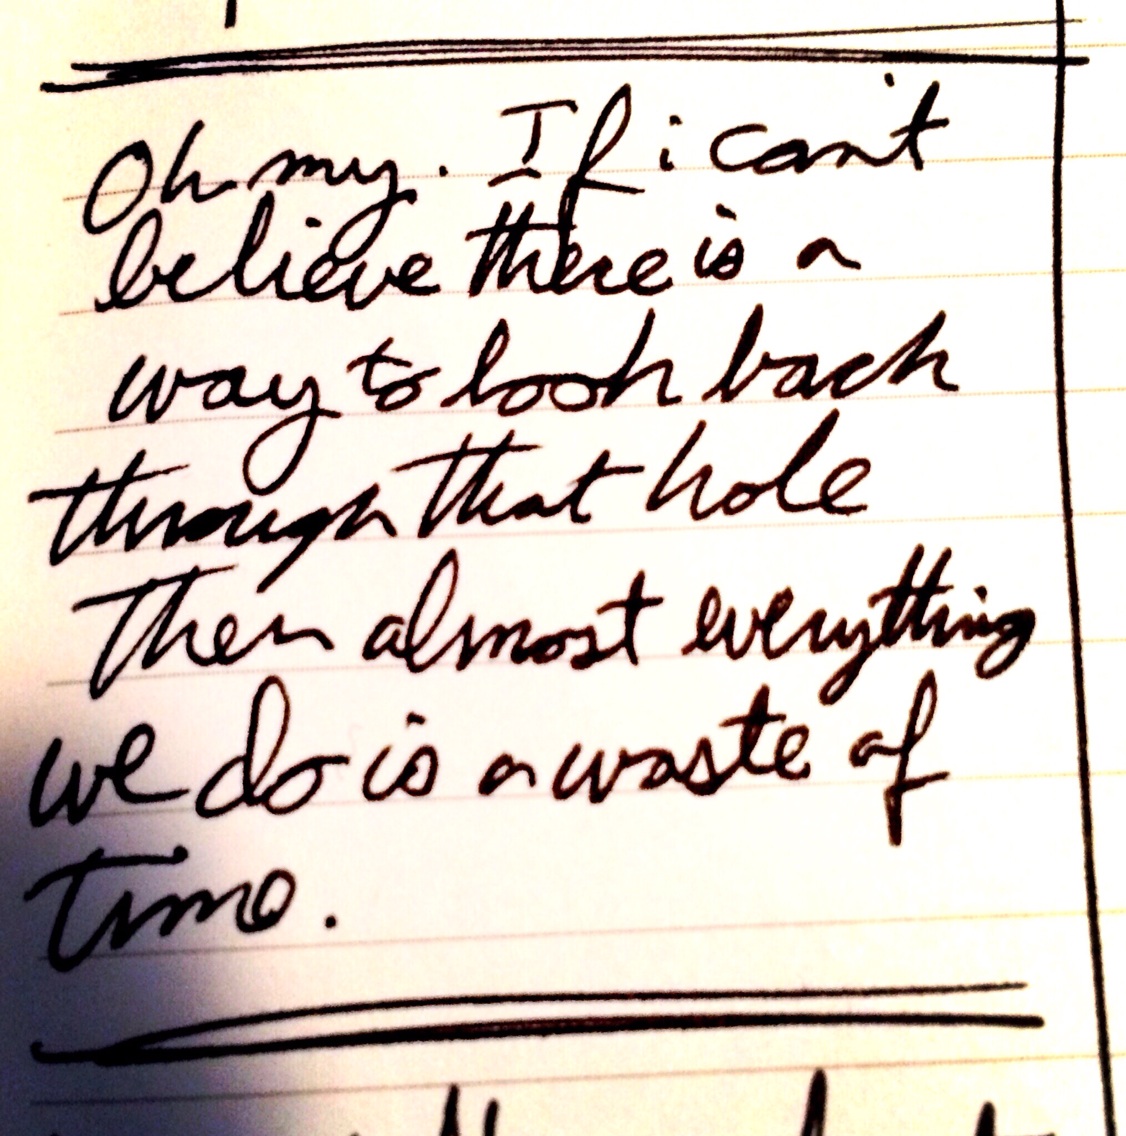 Oh my. If i can't
believe there is a
way to look back
through that hole
Then almost everything
we do is a waste of
time.